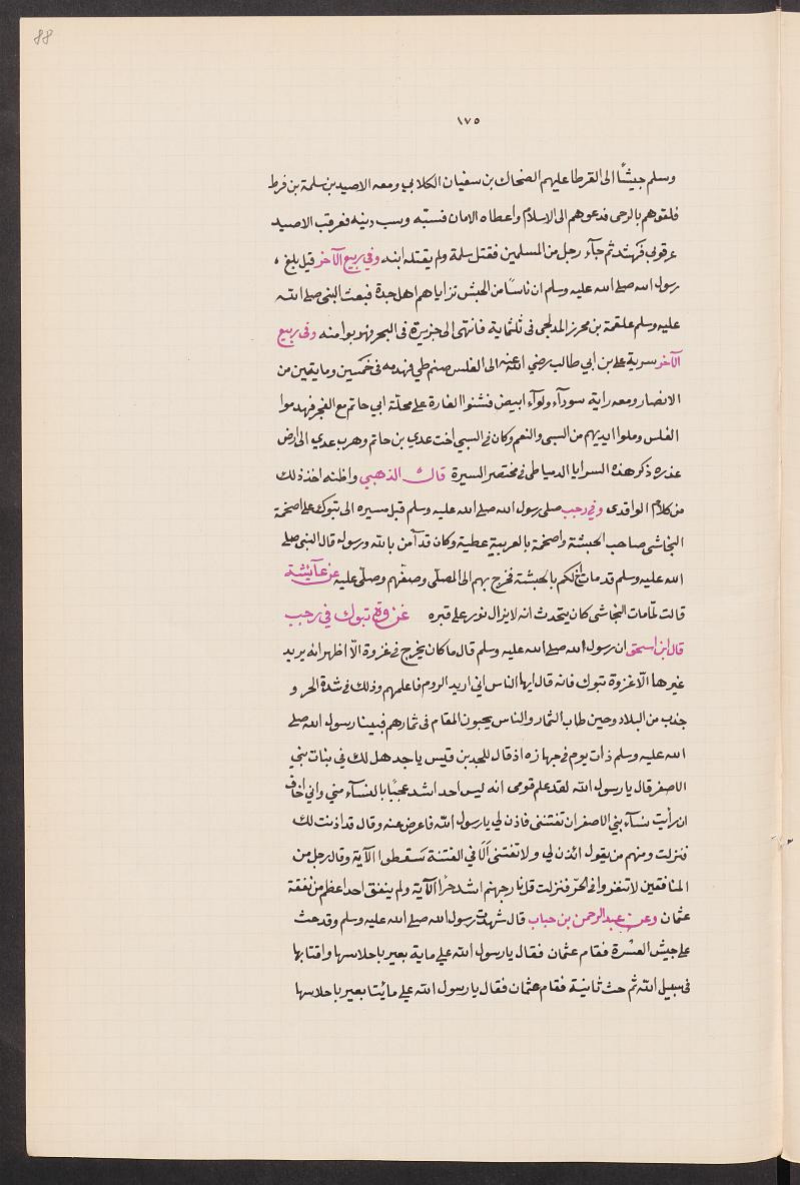 88
١٧٥
وسلم جيشًا الى القرطا عليهم الضحاك بن سفيان الكلابي ومعه الاصيد بن سلمة بن قرط
فلقوهم بالرحى فدعوهم الى الاسلام واعطاه الامان فسبّه وسب دينه فعرقب الاصيد
عرقوبي فرسه ثم جآء رجل من المسلمين فقتل سلمة ولم يقتله ابنه وفي ربيع الآخر قيل بلغ
رسول الله صلى الله عليه وسلم ان ناسًا من الحبش تراياهم اهل جدة فبعث النبي صلى الله
عليه وسلم علقمة بن محرز المدلجي في ثلثماية فانتهى الى جزيرة في البحر فهربوا منه وفي ربيع
الآخر سرية على بن ابي طالب رضي الله عنه الى الفلس صنم طي ليهدمه في خمسين وماية من
الانصار ومعه راية سودآء ولوآء ابيض فشنوا الغارة على محلّة ابي حاتم مع الفجر فهدموا
الفلس وملوا ايديهم من السبي والنعم وكان في السبي اخت عدي بن حاتم وهرب عدي الى ارض
عذره ذكر هذه السرايا الدمياطي في مختصر السيرة قال الذهبي واظنه اخذ ذلك
من كلام الواقدى وفي رجب صلى رسول الله صلى الله عليه وسلم قبل مسيره الى تبوك على اصحمة
النجاشي صاحب الحبشة واصحمة بالعربية عطية وكان قد آمن بالله ورسوله قال النبي صلى
الله عليه وسلم قد مات اخ لكم بالحبشة فخرج بهم الى المصلّى وصفّهم وصلّى عليه عن عآيشة
قالت لمّا مات النجاشى كان يتحدث انه لا يزال نور على قبره غزوة تبوك في رجب
قال ابن اسحق ان رسول الله صلى الله عليه وسلم قال ما كان يخرج في غزوة الّا اظهر انه يريد
غيرها الّا غزوة تبوك فانه قال ايها الناس اني اريد الروم فاعلمهم وذلك في شدة الحر و
جدب من البلاد وحين طاب الثمار والناس يحبون المقام في ثمارهم فبينا رسول الله صلى
الله عليه وسلم ذات يوم في جهازه اذ قال للجد بن قيس يا جد هل لك في بنات بني
الاصفر قال يا رسول الله لقد علم قومى انه ليس احد اشد عجبًا بالنسآء مني واني اخاف
ان رأيت نسآء بني الاصفر ان تفتننى فاذن لي يا رسول الله فاعرض عنه وقال قد اذنت لك
فنزلت ومنهم من يقول ائذن لي ولا تفتنى ألا في الفتنة سقطوا الآية وقال رجل من
المنافقين لا تنفروا في الحرّ فنزلت قل نار جهنم اشد حرًا الآية ولم ينفق احد اعظم من نفقة
عثمان وعن عبد الرحمن بن حباب قال شهدت رسول الله صلى الله عليه وسلم وقد حث
على جيش العسرة فقام عثمان فقال يا رسول الله علي ماية بعير باحلاسها واقتابها
في سبيل الله ثم حث ثانية فقام عثمان فقال يا رسول الله علي مائتا بعير باحلاسها